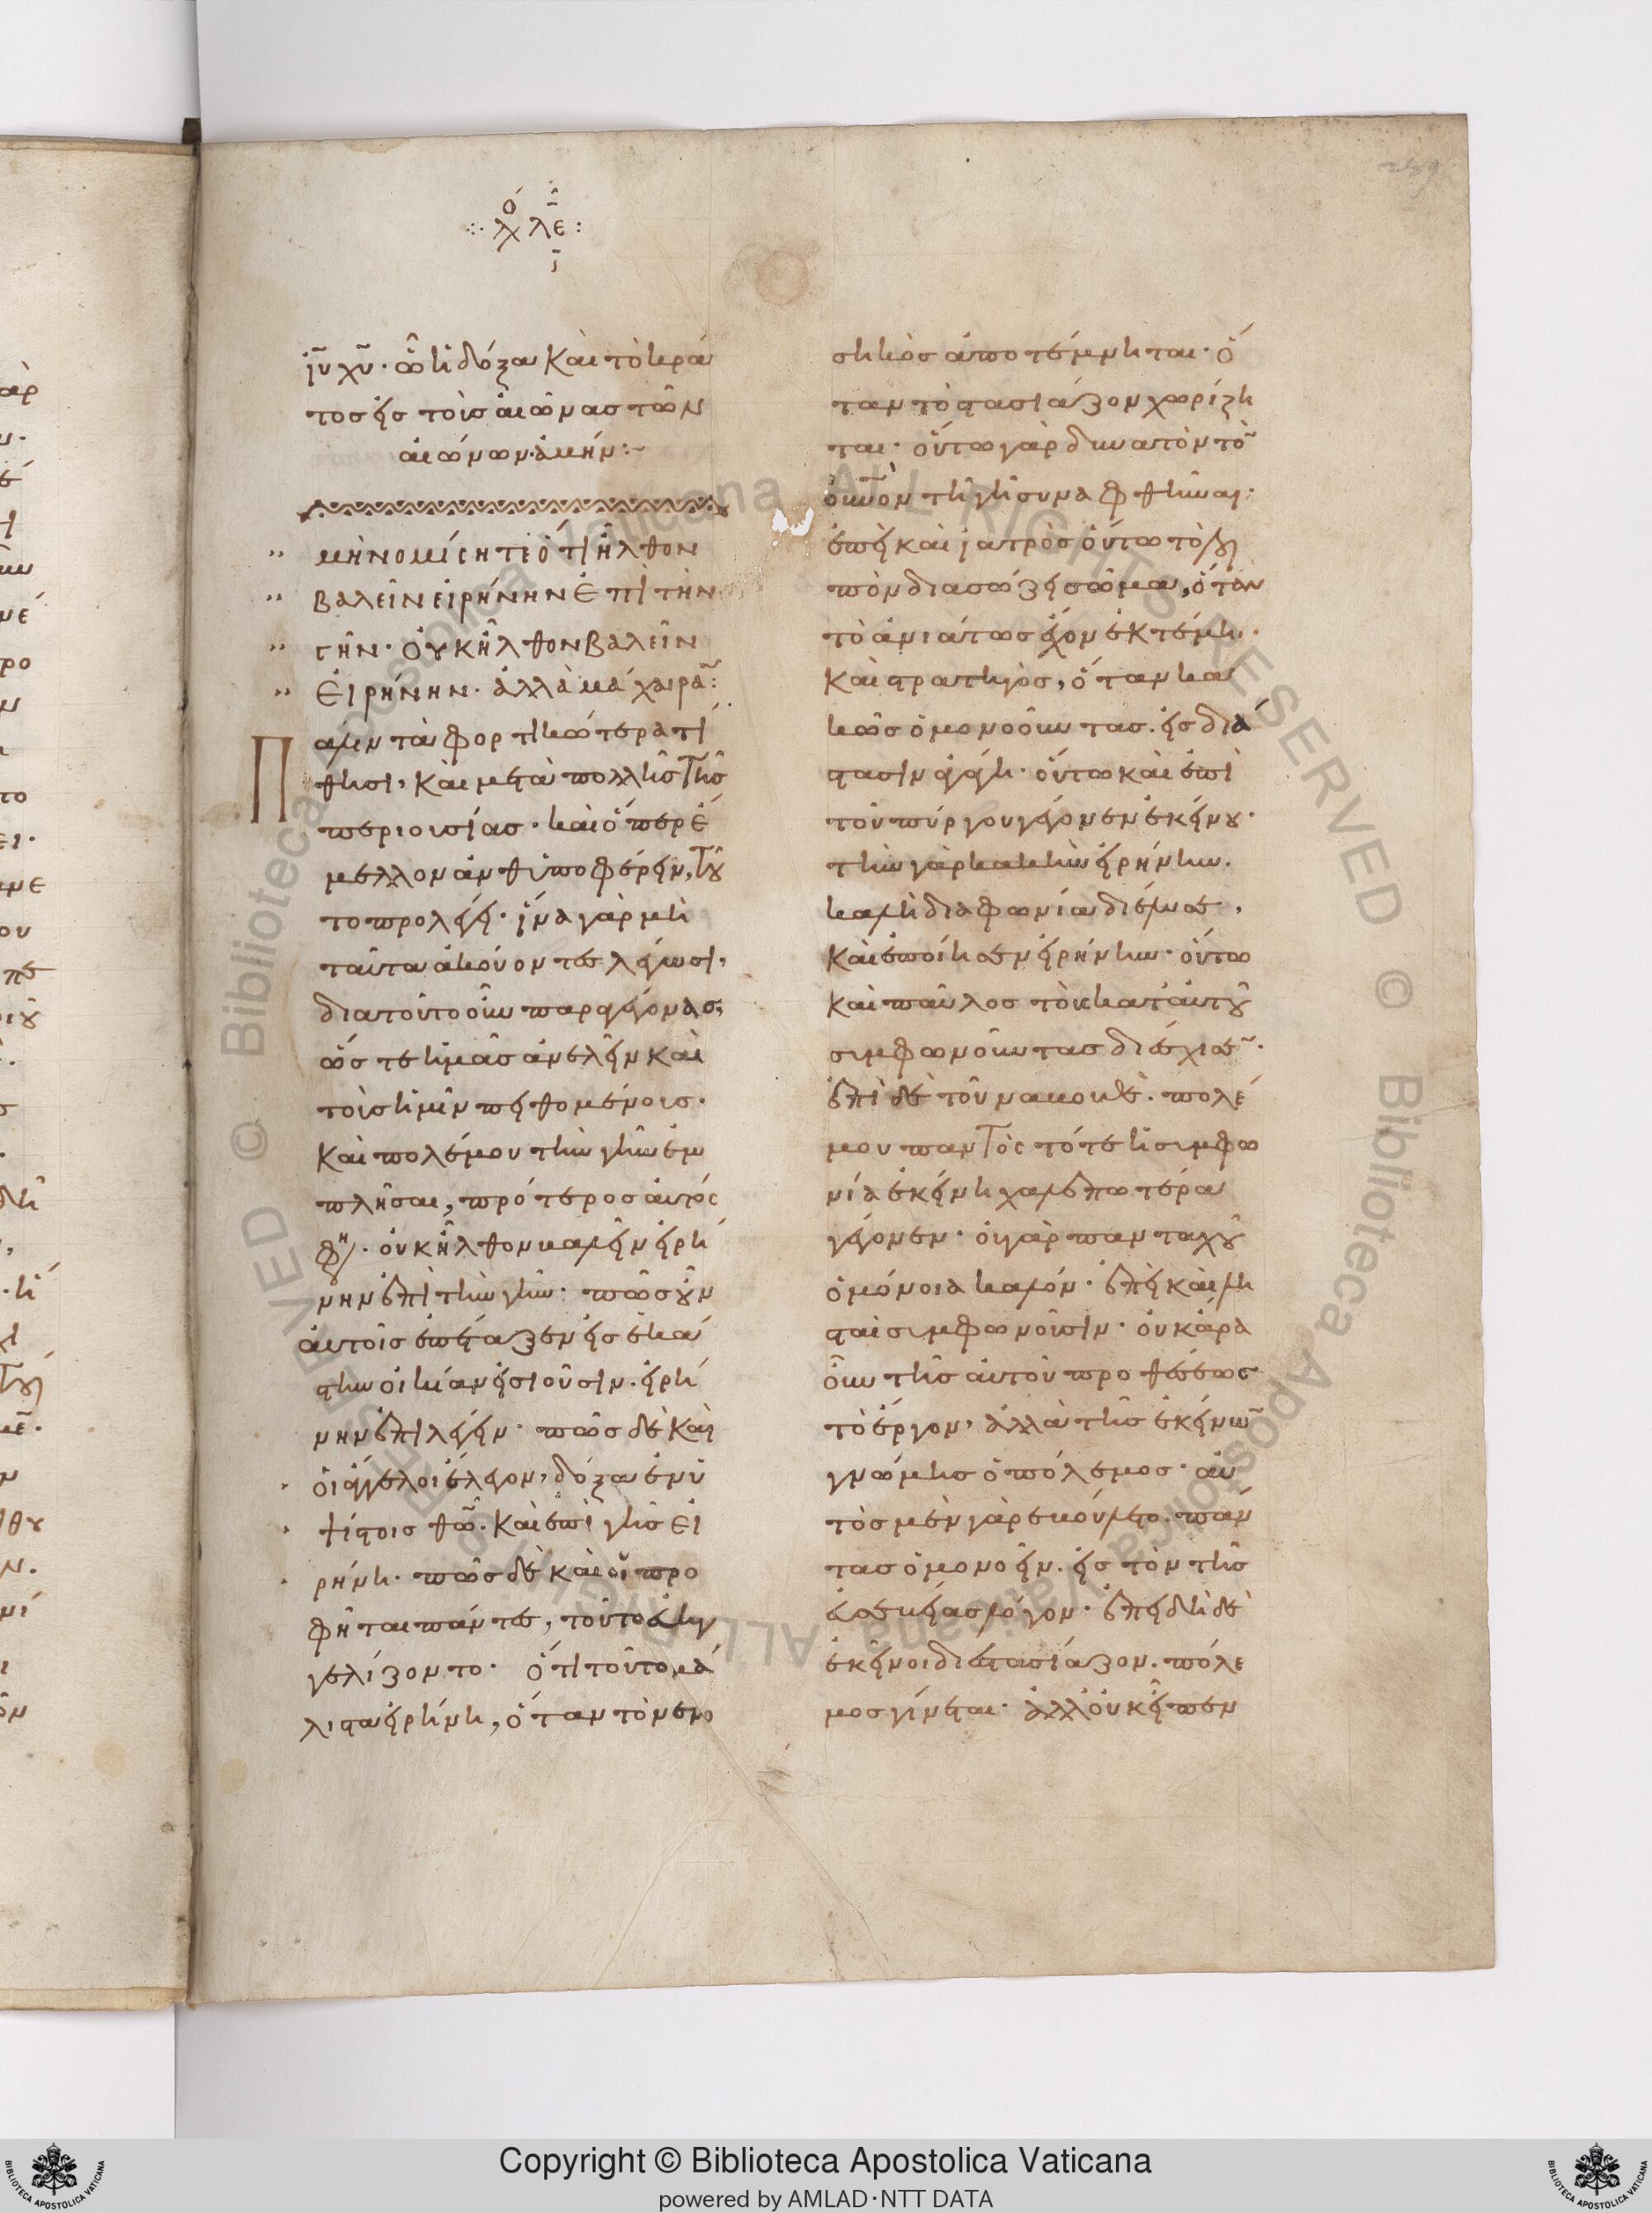 λο λε:
ιῦ χῦ· ὧ ἡ δόξα καὶ τὸ κρά
τος εἰς τοὺς αἰῶνας τῶν
αἰώνων· ἀμήν:~
μὴ νομίσητε ὅτι ἦλθον
βαλεῖν εἰρήνην ἐπὶ τὴν
γῆν· οὐκ ἦλθον βαλεῖν
εἰρήνην· ἀλλὰ μάχαιρα̃:
Πάλιν τὰ φορτικώτερα τί
θησι, καὶ μετὰ πολλῆς τῆς
περιουσίας· καὶ ὅπερ ἔ
μελλον ἀνθυποφέρειν, τοῦ
το προλέγει· ἵνα γὰρ μὴ
ταῦτα ἀκούοντες λέγωσι,
διατοῦτο οὖν παραγέγονας,
ὥστε ἡμᾶς ἀνελεῖν καὶ
τοὺς ἡμῖν πειθομένους·
καὶ πολέμου τὴν γῆν ἐμ
πλῆσαι, πρότερος αὐτός
φη· οὐκ ἦλθον βαλεῖν εἰρή
νην ἐπὶ τὴν γῆν· πῶς οὖν
αὐτοῖς ἐπέταξεν εἰς ἑκά
στην οἰκίαν εἰσιοῦσιν· εἰρή
νην ἐπιλέγειν· πῶς δὲ καὶ
οἱ ἄγγελοι ἔλεγον, δόξα ἐν ὑ
ψίστοις θῶ· καὶ ἐπὶ γῆς εἰ
ρήνη· πῶς δὲ καὶ οἱ προ
φῆται πάντες, τοῦτο εὐηγ
γελίζοντο· ὅτι τοῦτο μά
λιστα εἰρήνη, ὅταν τὸ νενο
σηκὸς ἀποτέμνηται· ὅ
ταν τὸ στασιάζον χωρίζη
ται· οὕτω γὰρ δυνατὸν τὸ̃
οὐνὸν τῆ γῆ συναφθῆναι·
ἐπεὶ καὶ ἰατρὸς οὕτω τὸ λοι
πὸν διασώζει σῶμα, ὅταν
τὸ ἀνιάτως ἔχον ἐκτέμη·
καὶ στρατηγὸς, ὅταν κα
κῶς ὁμονοοῦντας· εἰς διά
στασιν ἀγάγη· οὕτω καὶ ἐπὶ
τοῦ πύργου γέγονεν ἐκείνου·
τὴν γὰρ κακὴν εἰρήνην·
καλὴ διαφωνία διέλυσε,
καὶ ἐποίησεν εἰρήνην· οὕτω
καὶ παῦλος τοὺς κατ' αὐτοῦ
συμφωνοῦντας διέσχισε̃·
ἐπὶ δὲ τοῦ ναβουθὲ· πολέ
μου παντὸς τότε ἡ συμφω
νία ἐκείνη χαλεπωτέρα
γέγονεν· οὐ γὰρ πανταχοῦ
ὁμόνοια καλόν· ἐπεὶ καὶ λη
σταὶ συμφωνοῦσιν· οὐκ ἄρα
οὖν τῆς αὐτοῦ προθέσεως
τὸ ἔργον, ἀλλὰ τῆς ἐκείνω̃
γνώμης ὁ πόλεμος· αὐ
τὸς μὲν γὰρ ἐβούλετο· πάν
τας ὁμονοεῖν· εἰς τὸν τῆς
εὐσεβείας λόγον· ἐπειδὴ δὲ
ἐκεῖνοι διεστασίαζον· πόλε
μος γίνεται· ἀλλ' οὐκ εἶπεν